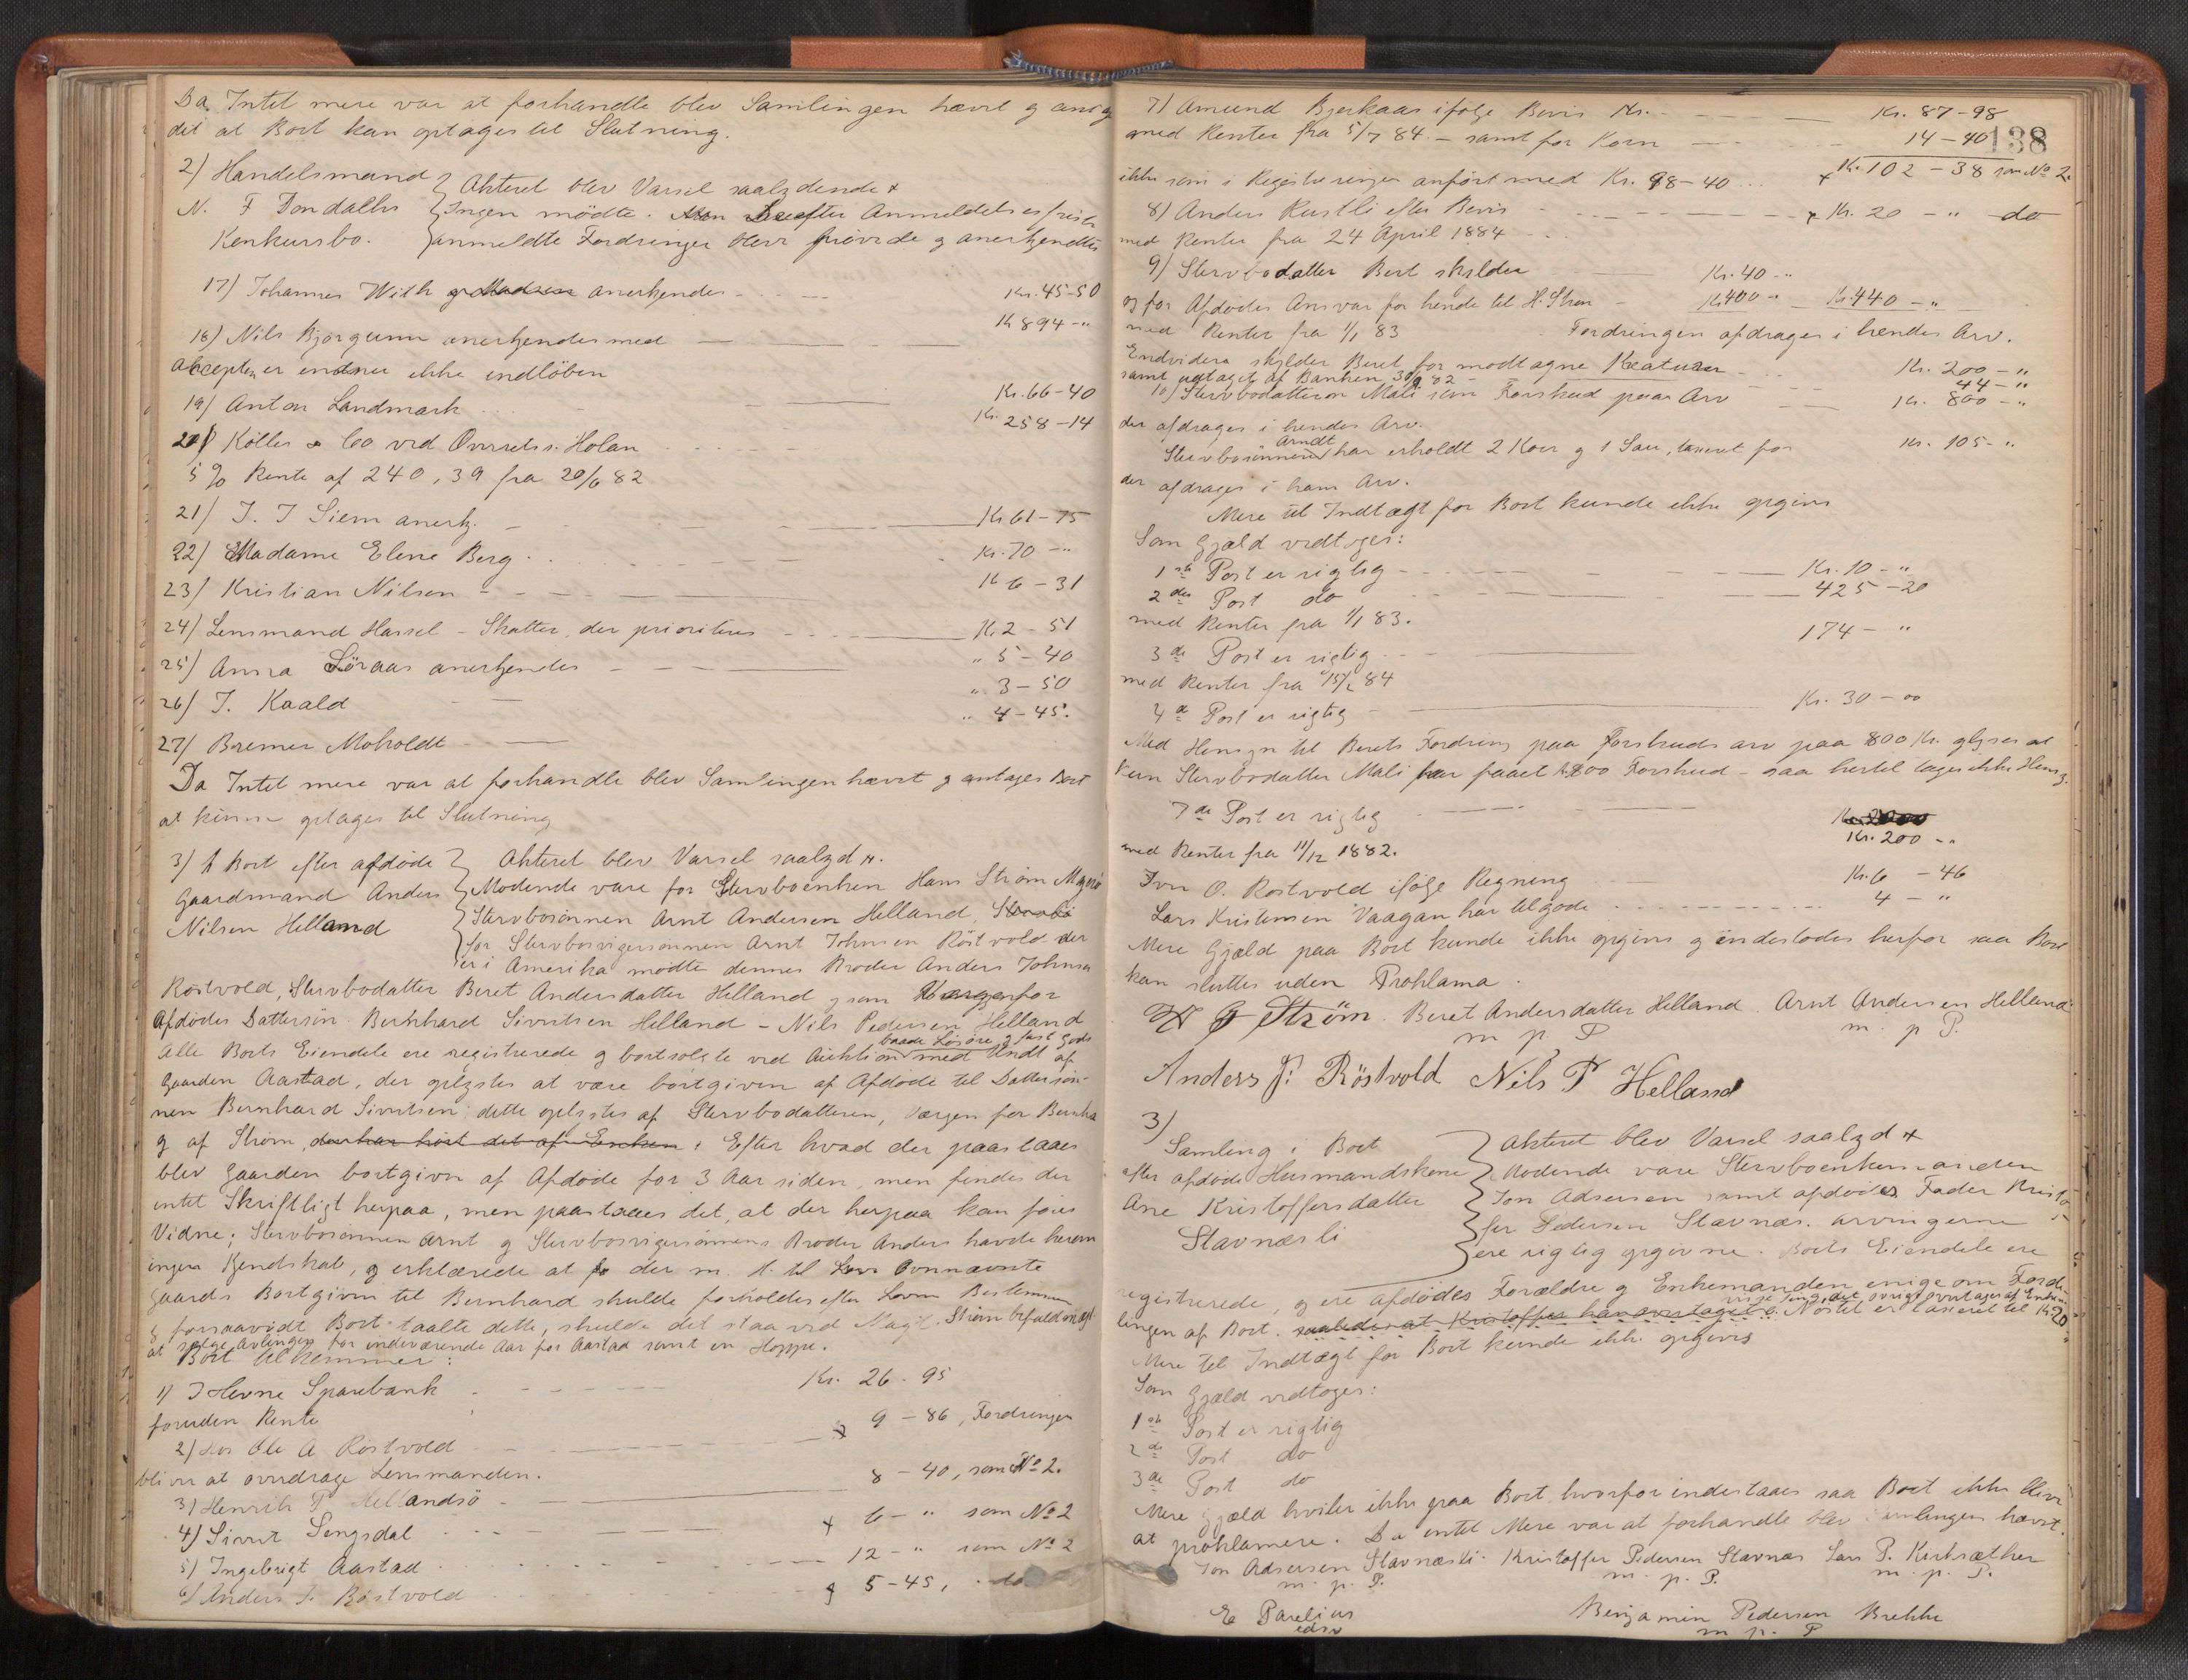 Da Intet mere var at forhandle blev Samlingen hævet og antog
det at Boet kan optages til Slutning.
2) Handelsmand
N. F Dondalhs
Konkursbo.
Akteret blev Varsel saalydende +
Ingen mödte. efter Anmeldelsesfrist
anmeldte Fordringer blev prövede og anerkjendtes
17) Johannes With anerkjendes Kr. 45-50
18) Nils Bjørgum anerkjendes med K 894-"
Accepten er endnu ikke indlöben
19) Anton Landmark Kr. 66-40
20) Köller & Co ved Overrets s. Holan Kr. 258-14
5 % Rente af 240,39 fra 20/6 82
21) J. J Siem anerkj. Kr 61-75
22) Madame Elene Berg Kr. 70 -"
23) Kristian Nilsen K 6-31
24) Lensmand Hassel - Skatter, der prioriteres Kr. 2-51
25) Anna Löraas anerkjendes " 5-40
26) J. Kaald " 3-50
27) Bremer Moholdt " 4-45.
Da Intet mere var at forhandle blev Samlingen hævet og antages Boet
at kunne optages til Slutning
3) Boet efter afdöde
Gaardmand Anders
Nilsen Helland
Akteret blev Varsel saalyd +.
Mödende vare for Stervboenken Hans Ström
Stervbosönnen Arnt Andersen Helland,
for Stervbosvigersönnen Arnt Johnsen Röstvold der
er i Amerika mödte dennes Broder Anders Johnsen
Röstvold, Stervbodatter Beret Andersdatter Helland og som Værge for
Afdödes Dattersön Bernhard Sivertsen Helland - Nils Pedersen Helland
Alle Boets Eiendele ere registrerede og bortsolgte ved Auktion baade Lösöre og fast Gods med Undt af
Gaarden Aastad, der oplystes at være bortgiven af Afdöde til Dattersön-
nen Bernhard Sivertsen; dette oplystes af Stervbodatteren, Værgen for Bernha
og af Ström, der har hört det af Enken. Efter hvad der paastaaes
blev Gaarden bortgiven af Afdöde for 3 Aar siden, men findes der
intet Skriftligt herpaa, men paastaaes det, at der herpaa kan föres
Vidne; Stervbosönnen Arnt og Stervbosvigersönnens Broder Anders havde herom
ingen Kjendskab, og erklærede at der m. H. til Ovennævnte
Gaards Bortgiven til Bernhard skulde forholdes efter Lovens Bestemmelser
og forsaavidt Boet taalte dette, skulde det staa ved Magt. Ström befuldmægt
at sælge Avlingen for indeværende Aar for Aastad samt en Hoppe.
Boet tilkommer:
1) I Hevne Sparebank Kr. 26-95
foruden Rente
2) Hos Ole A Röstvold 9-86, Fordringen
bliver at overdrage Lensmanden.
3) Henrik P Hellandsö 8-40, som No 2.
4) Sivert Lengsdal + 6-" som No 2
5) Ingebrigt Aastad 12-" som No 2
6) Anders J. Röstvold 5-45, do
138
7) Amund Bjerkaas ifölge Bevis Kr. Kr. 87-98
med Renter fra 5/7 84 - samt for Korn 14-40
ikke som i Registeringen anfört med Kr. 98-40 + Kr. 102-38 som No 2.
8) Anders Rustli efter Bevis + Kr. 20-" do
med Renter fra 24 April 1884
9) Stervbodatter Beret skylder Kr. 40-"
og for Afdödes Ansvar for hende til H. Ström Kr 400-" Kr. 440-"
med Renter fra 1/1 83 Fordringen afdrages i hendes Arv.
Endvidere skylder Beret for modtagne Kreaturer Kr. 200-"
samt udtaget af Banken 30/9 82 44-"
10) Stervbodatteren Mali som Forskud paa Arv Kr. 800-"
der afdrages i hendes Arv.
Stervbosönnen Arndt har erholdt 2 Koer og 1 Sau, taxeret for Kr. 105-"
der afdrages i hans Arv.
Mere til Indtægt for Boet kunde ikke opgives
Som Gjæld vedtoges:
1ste Post er rigtig Kr. 10-"
2den Post do 425-20
med Renter fra 1/1 83.
3de Post er rigtig 174-"
med Renter fra 15/2 84
4de Post er rigtig Kr. 30-00
Med Hensyn til Berets Fordring paa Forskuds arv paa 800 Kr. oplyses at
kun Stervbodatter Mali har faaet 800 Forskud - saa hertil tages ikke Hensy.
7de Post er rigtig Kr. 200-"
med Renter fra 11/12 1882.
Iver O. Röstvold ifölge Regning Kr. 6-46
Lars Kristensen Vaagan har tilgode 4-"
Mere Gjæld paa Boet kunde ikke opgives og indestodes herfor saa Boet
kan sluttes uden Proklama.
Ström. Beret Andersdatter Helland. Arnt Andersen Helland
m. p. P. m. p. P.
Anders J. Röstvold Nils P Helland
3)
Samling i Boet
efter afdöde Husmandskone
Ane Kristoffersdatter
Stavnæsli
Akteret blev Varsel saalyd +
Mödende vare Stervboenkemanden
Jon Adsersen samt afdödes Fader Kristo
fer Pedersen Stavnæs. Arvingerne
ere rigtig opgivne. Boets Eiendele ere
registrerede, og ere afdödes Forældre og Enkemanden enige om Forde
lingen af Boet. saaledes at Kristoffer har overtaget. Nöstet er taxeret til Kr 20
Mere til Indtægt for Boet kunde ikke opgives
Som Gjæld vedtoges:
1ste Post er rigtig
2de Post do
3de Post do
Mere Gjæld hviler ikke paa Boet hvorfor indestaaes saa Boet ikke bliver
at proklamere. Da intet Mere var at forhandle blev Samlingen hævet.
Jon Adsersen Stavnæsli Kristoffer Pedersen Stavnæs Lars P. Kirksæther
m. p. P. m. p. P. m. p. P.
E Parelius Benjamin Pedersen Brekke
edsv m. p. P